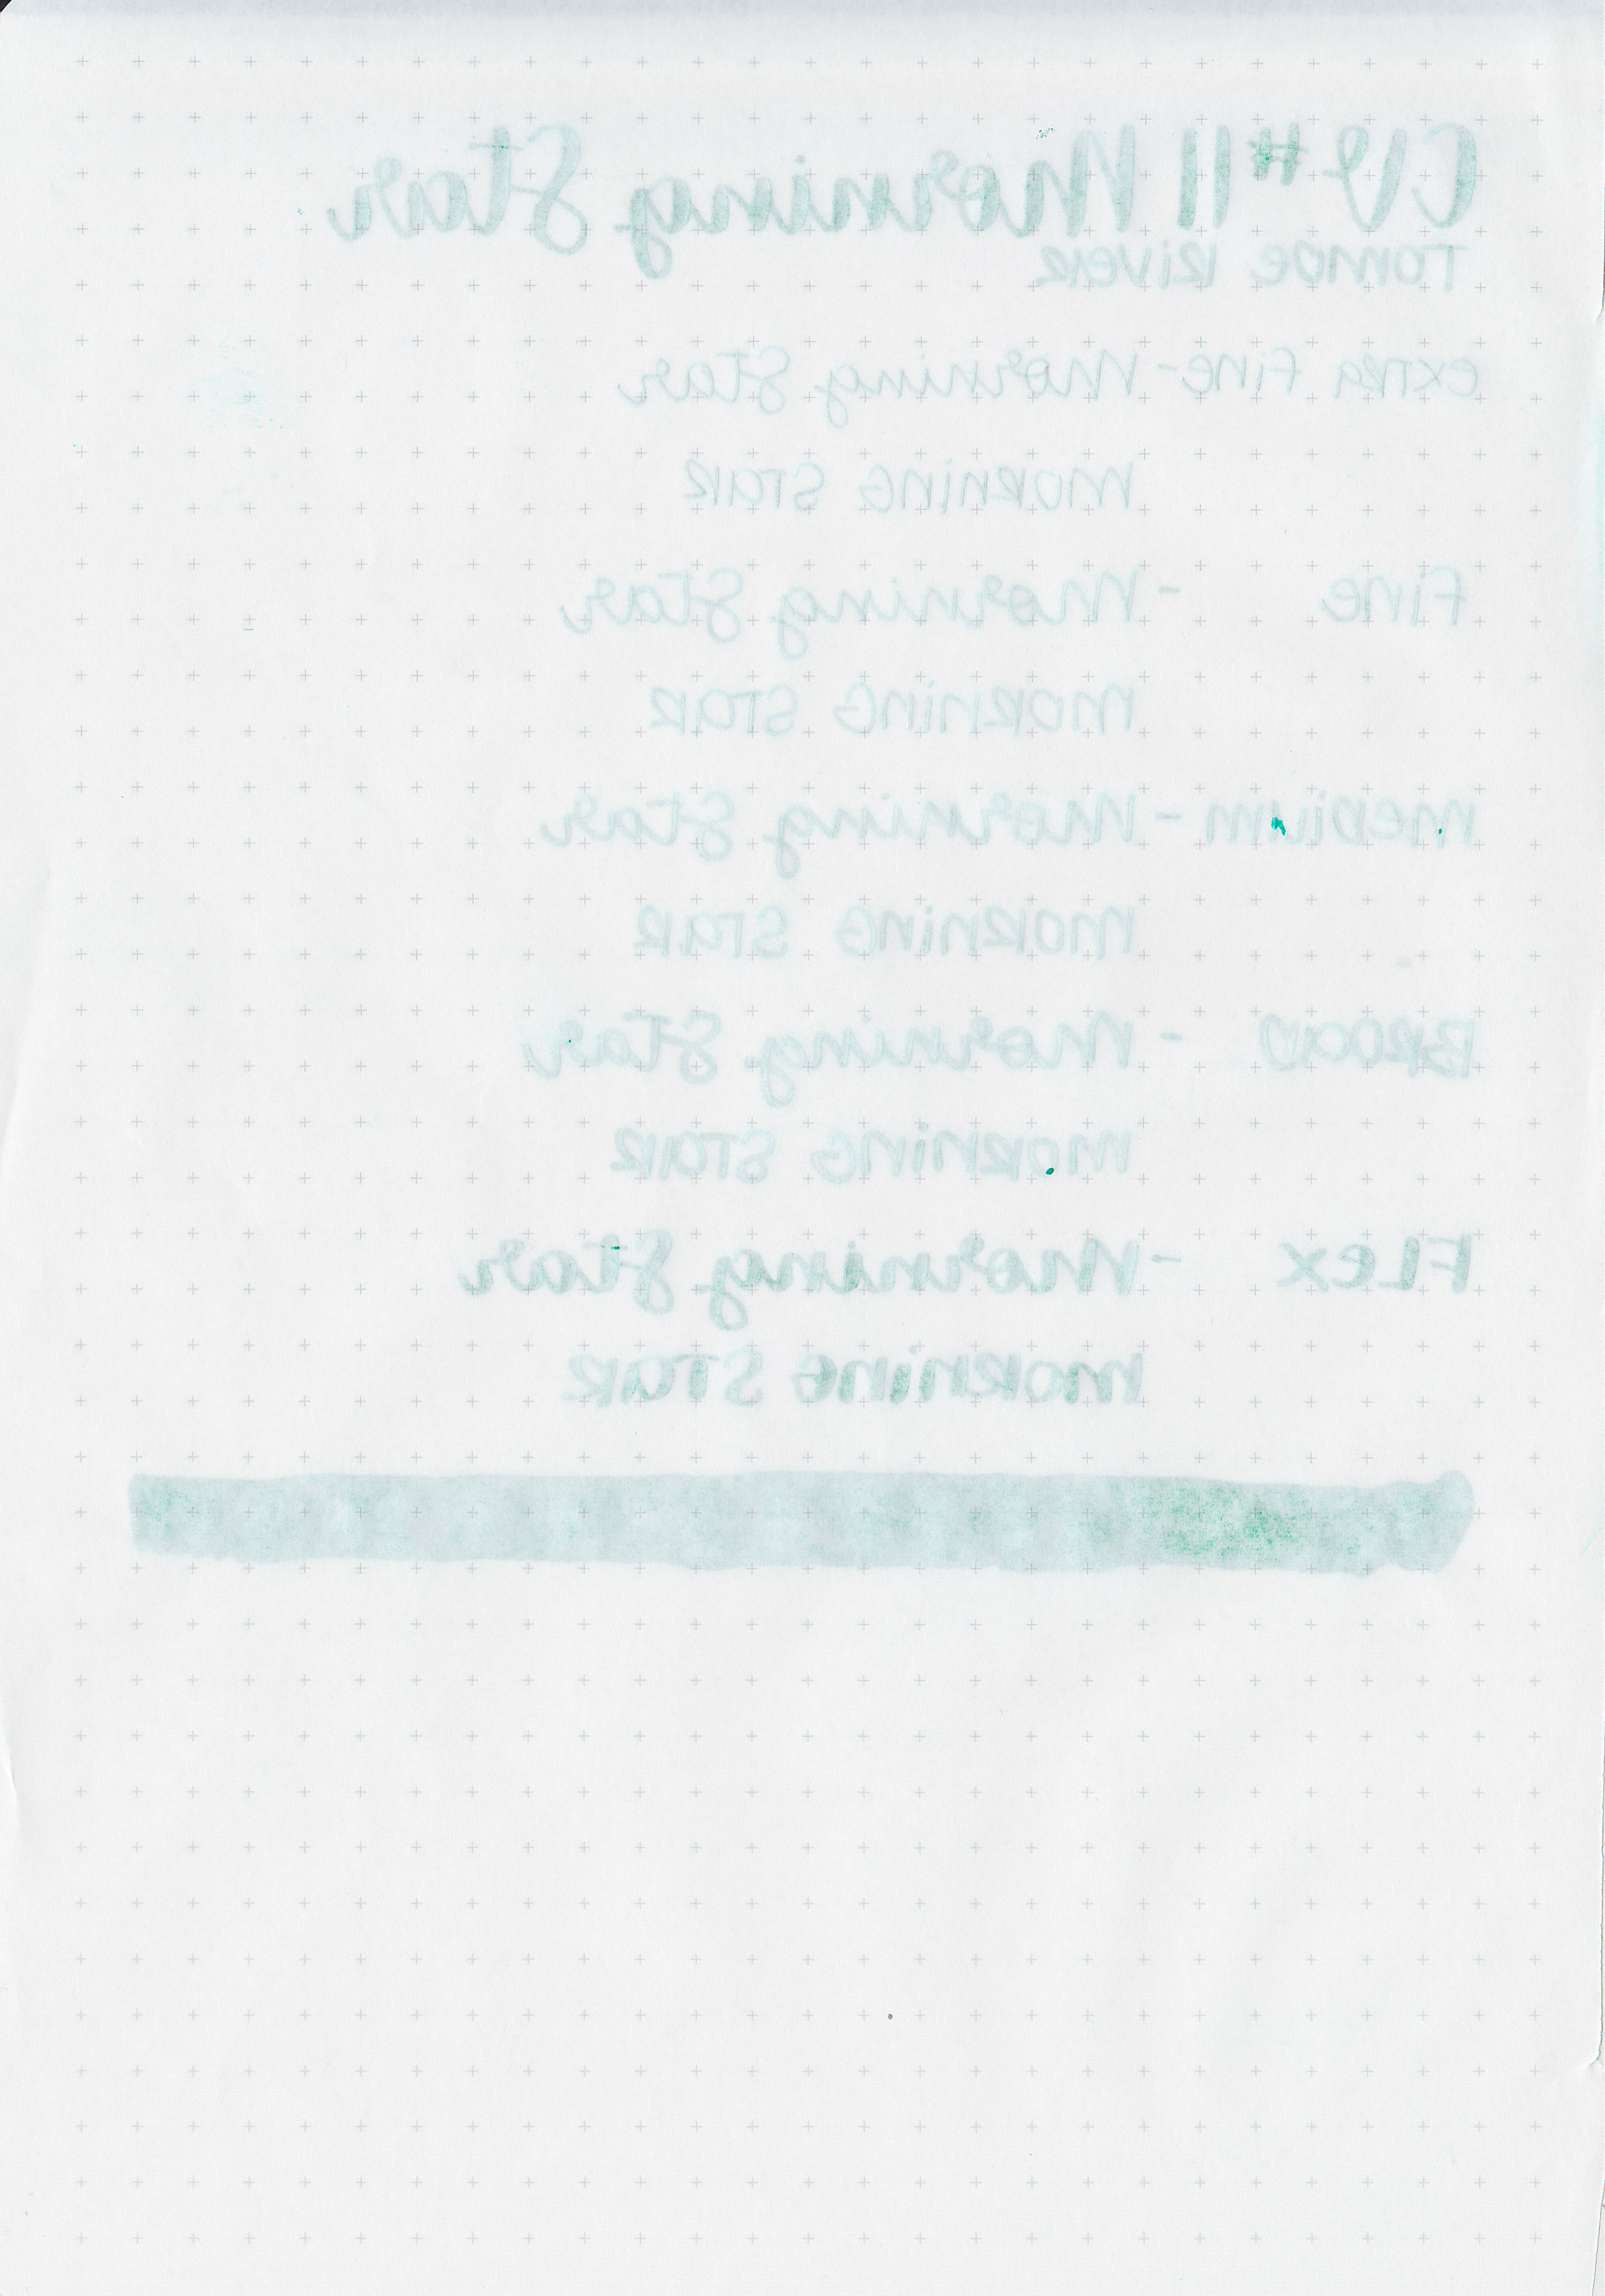 CV #11 Morning Star
Tomoe River
Extra Fine - Morning Star
Morning Star
Fine - Morning Star
Morning Star
Medium - Morning Star
Morning Star
Broad - Morning Star
Morning Star
Flex - Morning Star
Morning Star